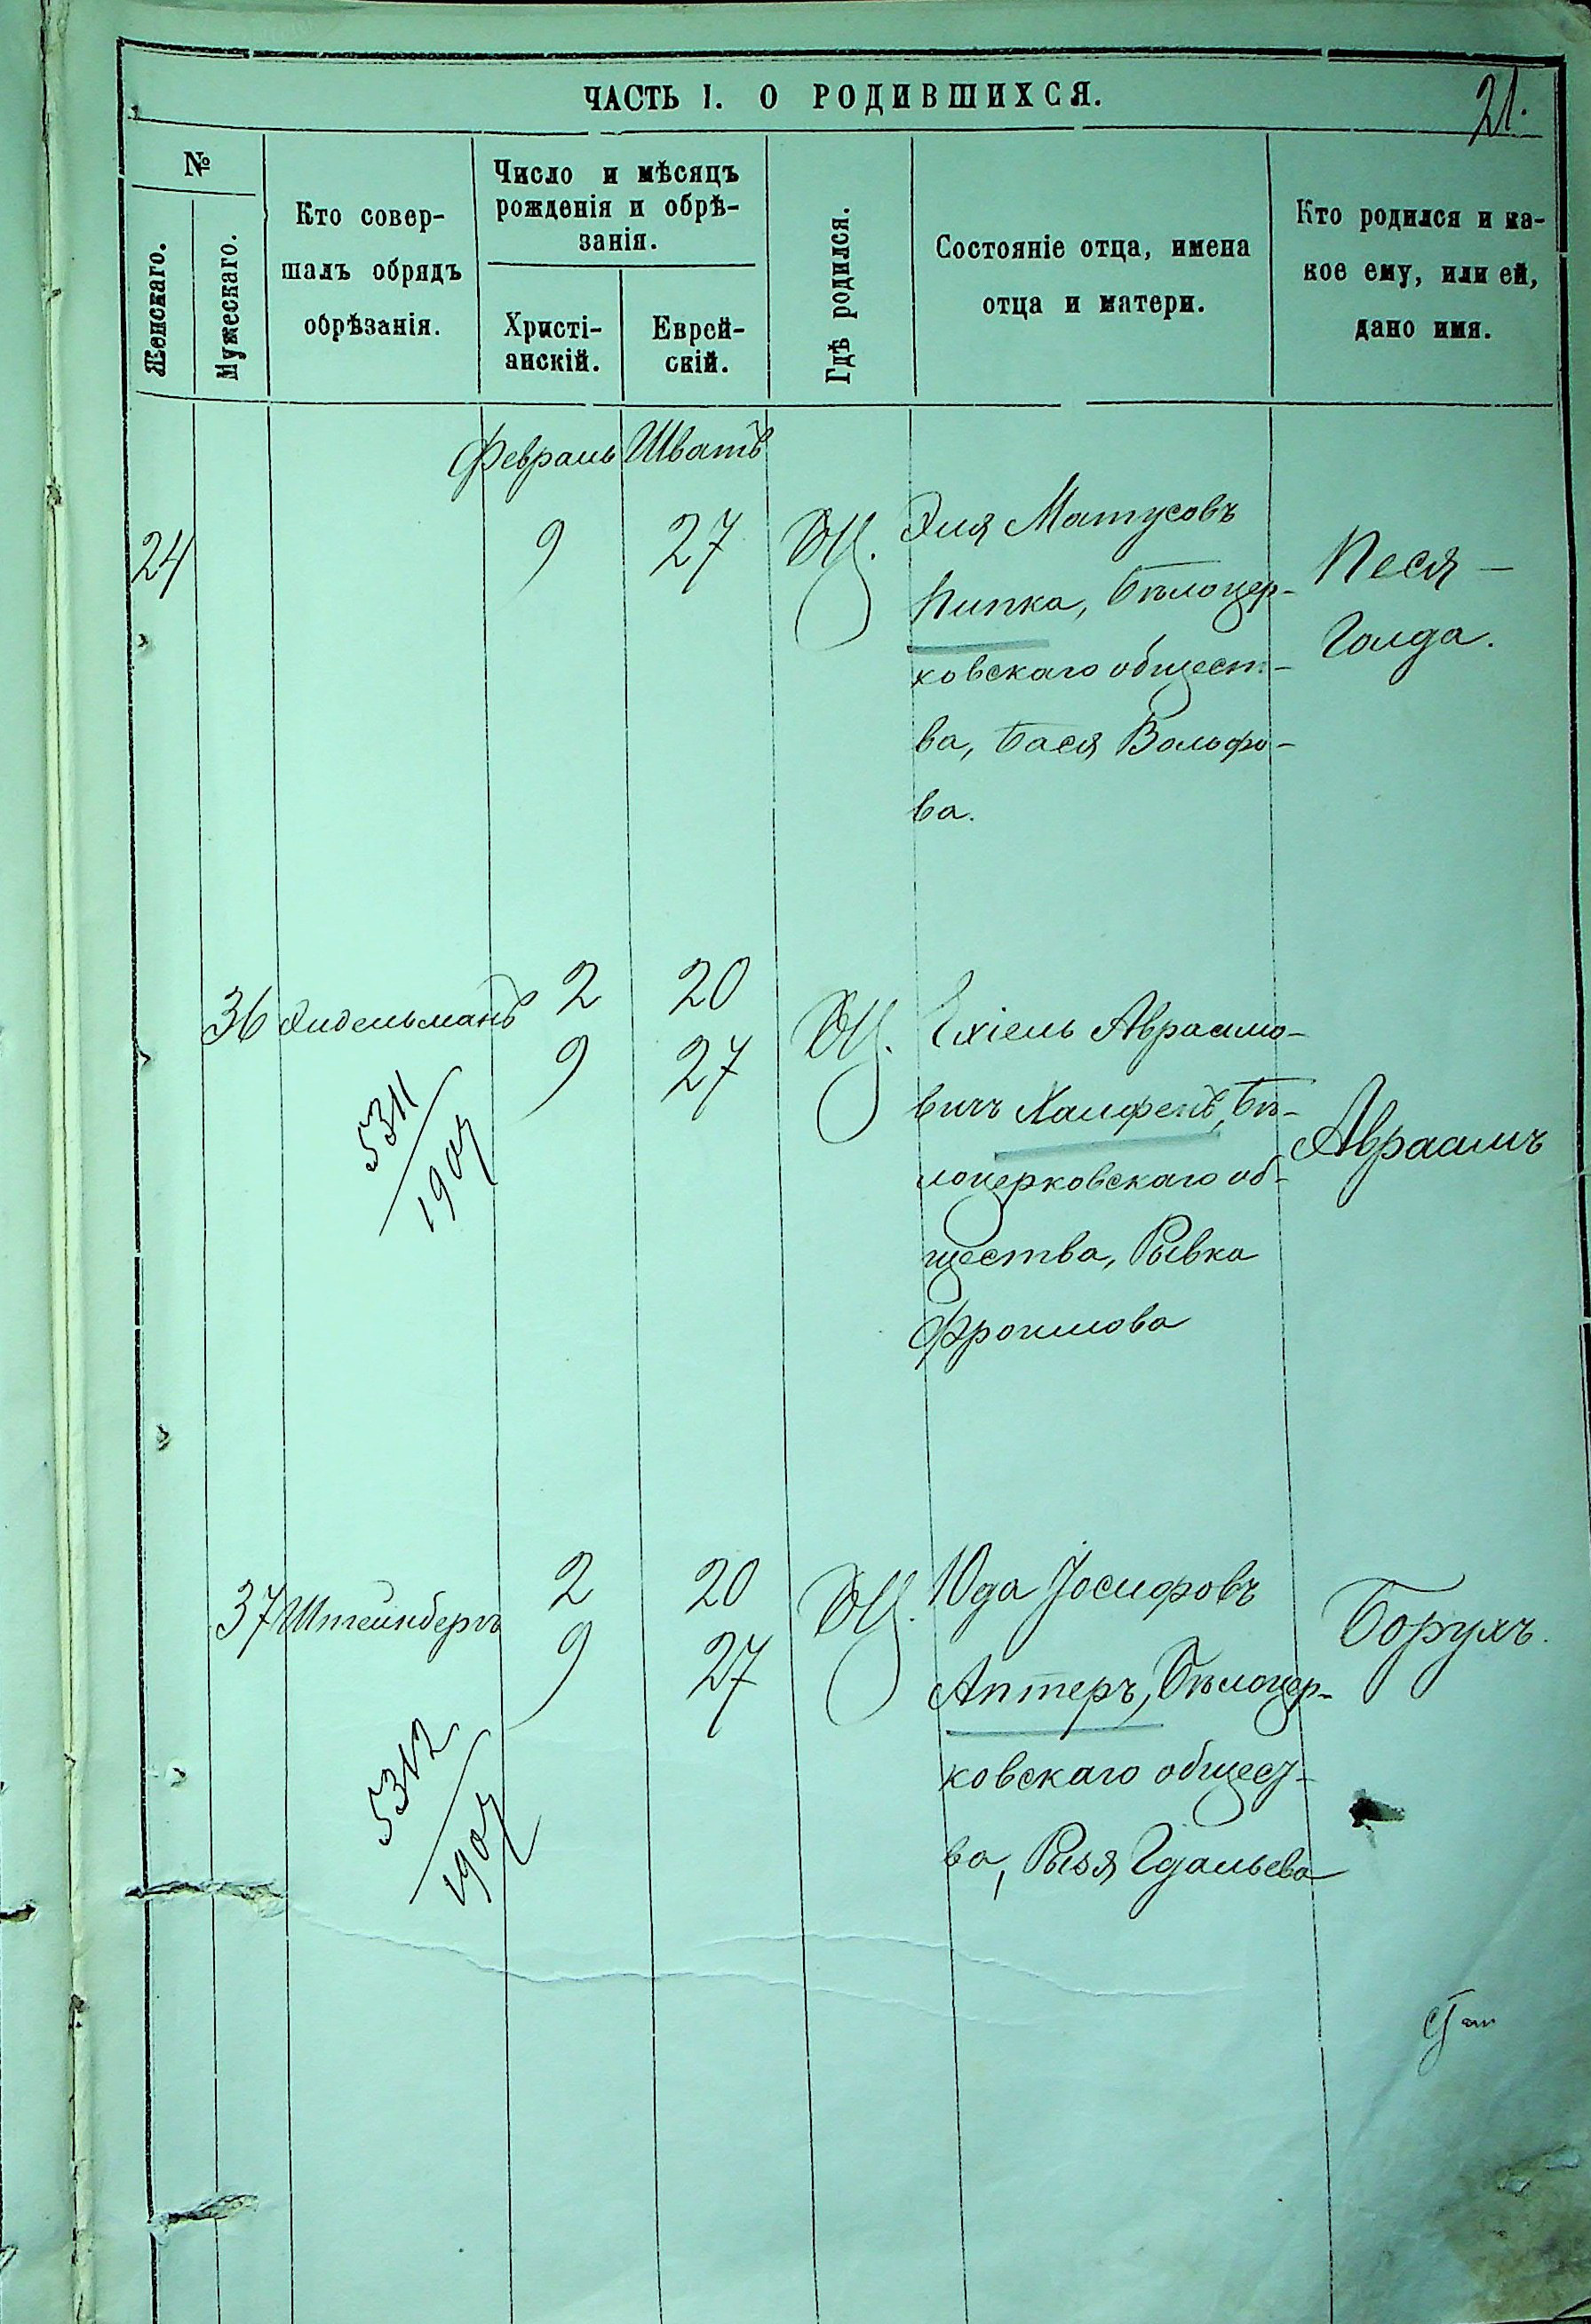 ЧАСТЬ I. О РОДИВШИХСЯ.
21.
№
Женскаго.
Мужескаго.
Кто совер-
шалъ обрядъ
обрѣзанія.
Число и мѣсяцъ
рожденія и обрѣ-
занія.
Христі-
анскій.
Еврей-
скій.
Гдѣ родился.
Состояніе отца, имена
отца и матери.
Кто родился и ка-
кое ему, или ей,
дано имя.
Февраль Шватъ
24
9
27
БЦ.
Эля Матусовъ
Пипка, Бѣлоцер-
ковскаго общест-
ва, Бася Вольфо-
ва.
Песя-
Голда.
36
Эйдельманъ
2
20
9
27
БЦ.
5311
1907
Ехіель Авраамо-
вичъ Халфенъ, Бѣ-
лоцерковскаго об-
щества, Рывка
Фроимова
Авраамъ
37
Штейнбергъ
2
20
9
27
БЦ.
5312
1907
Юда Іосифовъ
Аптеръ, Бѣлоцер-
ковскаго общест-
ва, Рызя Гдальева
Борухъ.